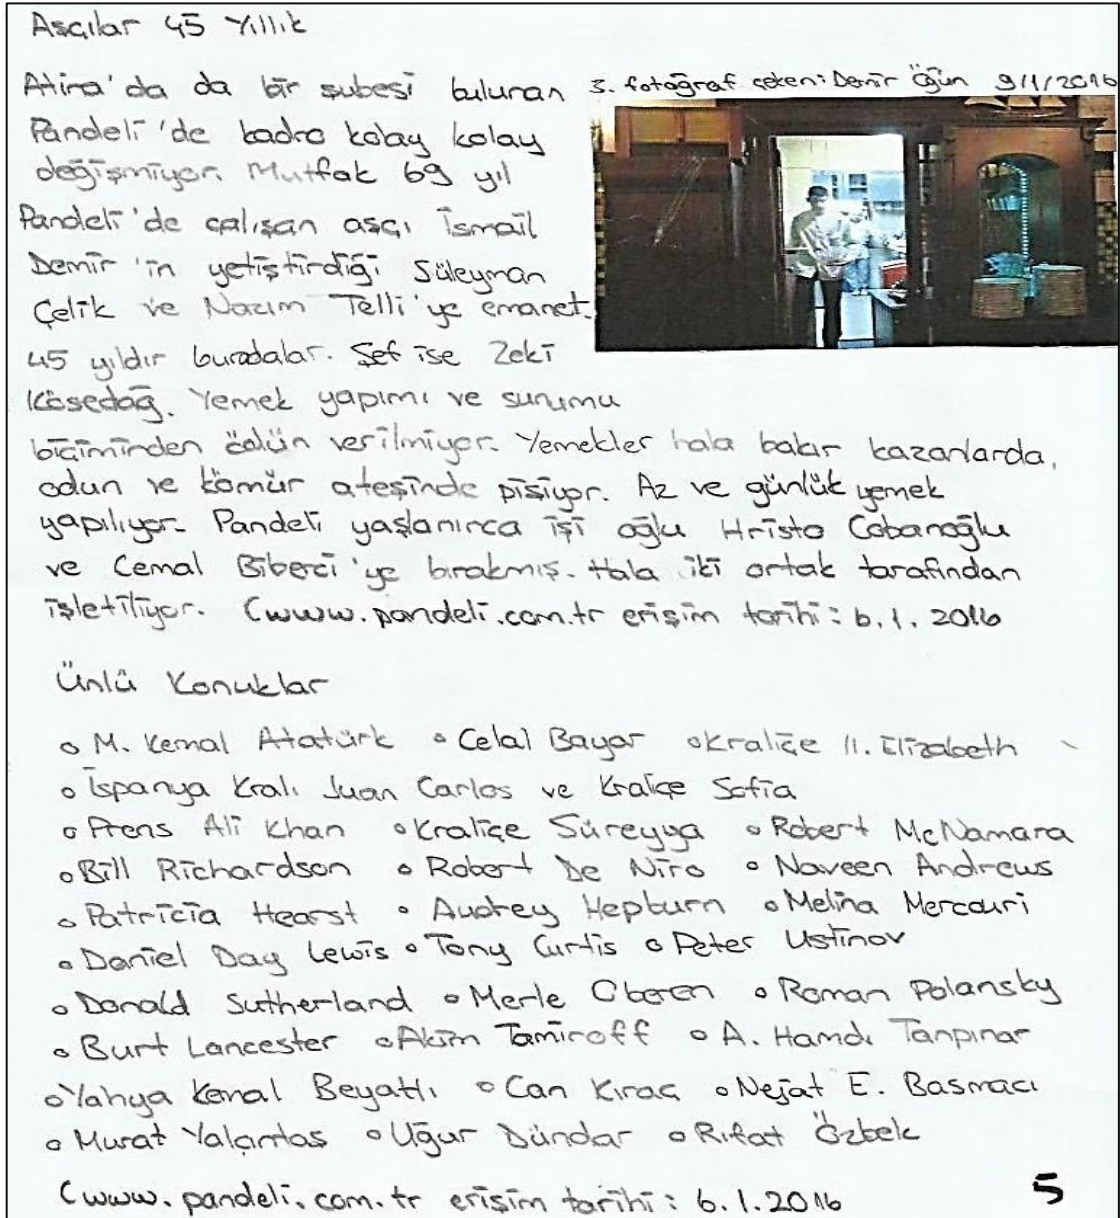 Aşçılar 45 Yıllık
Atina'da da bir şubesi bulunan
3. fotoğraf çeken: Demir Öğün 9/1/2016
Pandeli'de kadro kolay kolay
değişmiyor. Mutfak 69 yıl
Pandeli'de çalışan aşçı İsmail
Demir'in yetiştirdiği Süleyman
Çelik ve Nazım Telli'ye emanet.
45 yıldır buradalar. Şef ise Zeki
Kösedağ. Yemek yapımı ve sunumu
biçiminden ödün verilmiyor. Yemekler hala bakır kazanlarda,
odun ve kömür ateşinde pişiyor. Az ve günlük yemek
yapılıyor. Pandeli yaşlanınca işi oğlu Hristo Çobanoğlu
ve Cemal Biberci'ye bırakmış. Hala iki ortak tarafından
işletiliyor. (www.pandeli.com.tr erişim tarihi: 6.1.2016
Ünlü Konuklar
o M. Kemal Atatürk o Celal Bayar o Kraliçe II. Elizabeth
o İspanya Kralı Juan Carlos ve Kraliçe Sofia
o Prens Ali Khan o Kraliçe Süreyya o Robert McNamara
o Bill Richardson o Robert De Niro o Naveen Andrews
o Patricia Hearst o Audrey Hepburn o Melina Mercouri
o Daniel Day Lewis o Tony Curtis o Peter Ustinov
o Donald Sutherland o Merle Oberen o Roman Polansky
o Burt Lancester o Akim Tamiroff o A. Hamdi Tanpınar
o Yahya Kemal Beyatlı o Can Kıraç o Nejat E. Basmacı
o Murat Yalçıntaş o Uğur Dündar o Rıfat Özbek
(www.pandeli.com.tr erişim tarihi: 6.1.2016
5